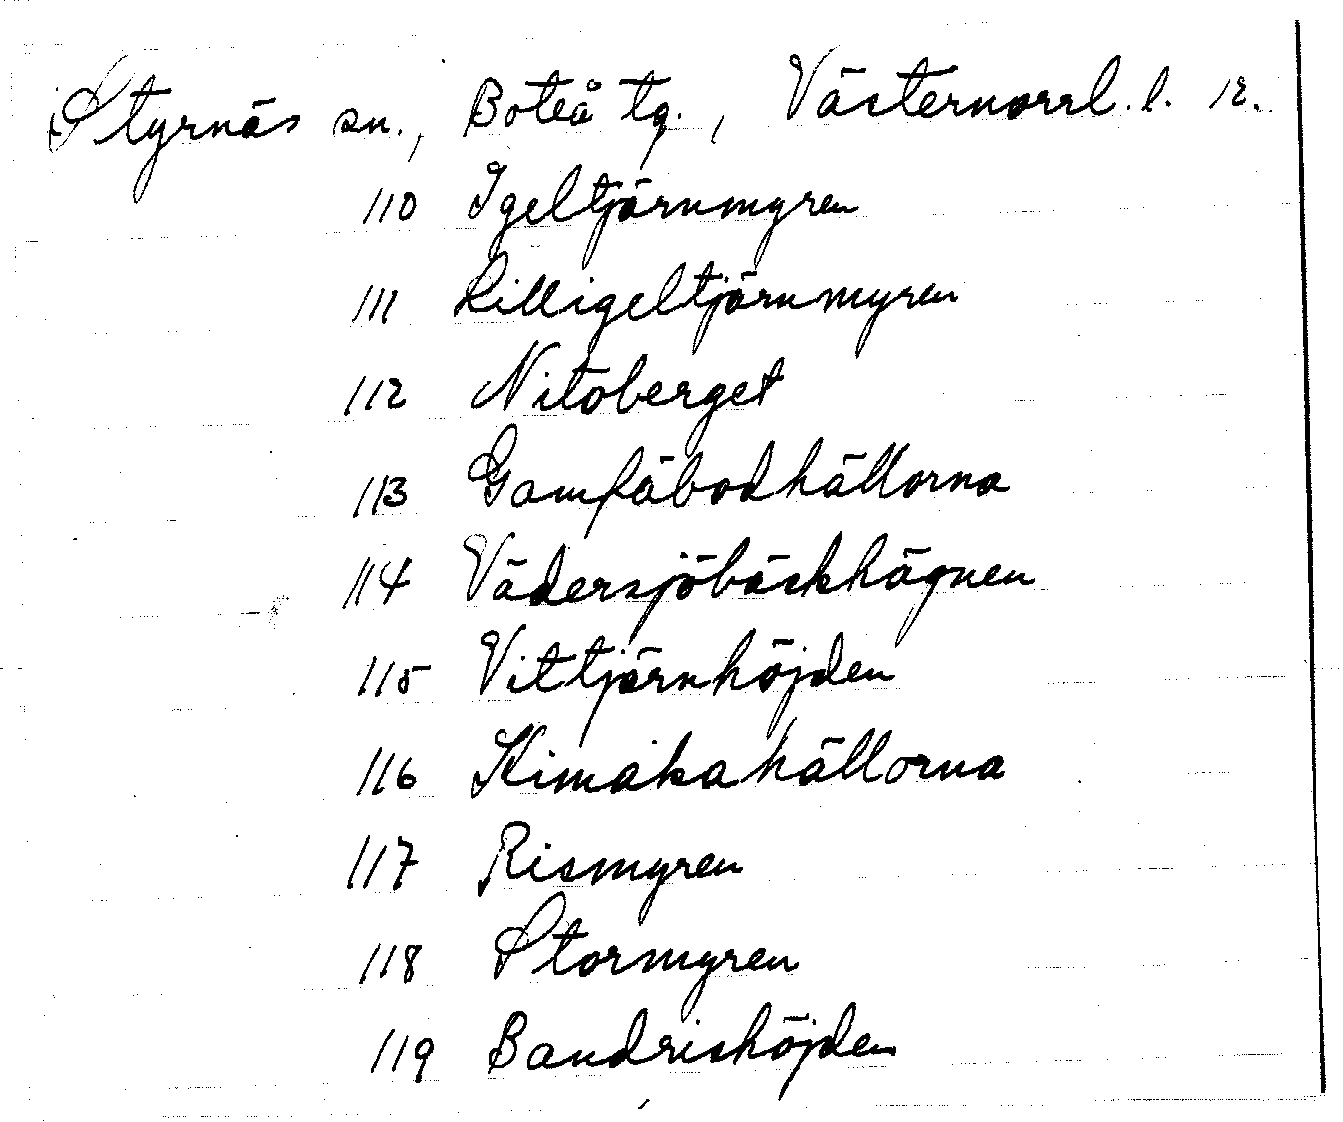 Styrnäs sn., Boteå tg., Västernorrl. l. 12.
110 Igeltjärnmyren
111 Lilligeltjärnmyren
112 Nitöberget
113 Gamfäbodhällorna
114 Vädersjöbäckhägnen
115 Vittjärnhöjden
116 Kimåkahällorna
117 Rismyren
118 Stormyren
119 Bandrishöjden